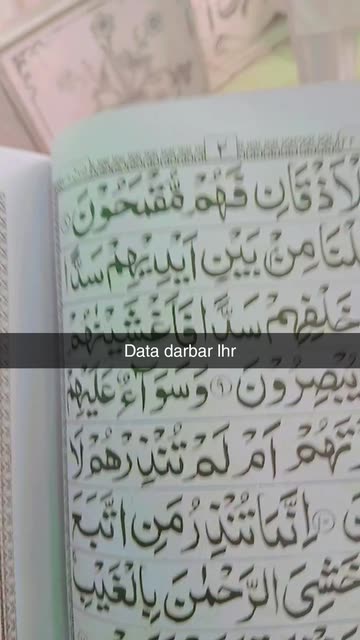 ٢
لْاَذْقَانِ فَهُمْ مُّقْمَحُوْنَ
لْنَا مِنْۢ بَيْنِ اَيْدِيْهِمْ سَدًّا
خَلْفِهِمْ سَدًّا فَاَغْشَيْنٰهُمْ
Data darbar lhr
يُبْصِرُوْنَ ۹ وَسَوَآءٌ عَلَيْهِمْ
تَهُمْ اَمْ لَمْ تُنْذِرْهُمْ لَا
نَ ۱۰ اِنَّمَا تُنْذِرُ مَنِ اتَّبَعَ
خَشِيَ الرَّحْمٰنَ بِالْغَيْبِ